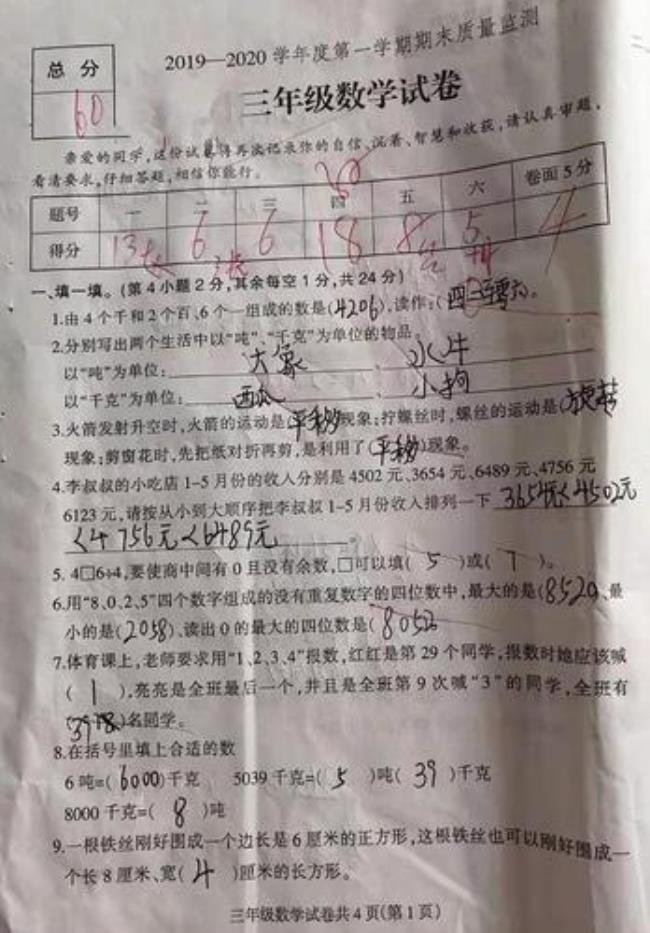 2019—2020学年度第一学期期末质量监测
总 分
60
三年级数学试卷
亲爱的同学,这份试卷将再次记录你的自信、沉着、智慧和收获,请认真审题,
看清要求,仔细答题,相信你能行。
30
题号 一 二 三 四 五 六 卷面5分
得分 13 6 6 18 8 5 4
一、填一填。(第4小题2分,其余每空1分,共24分)
1.由4个千和2个百、6个一组成的数是(4206),读作:(四 零六)。
2.分别写出两个生活中以“吨”、“千克”为单位的物品。
以“吨”为单位: 大象 、 水牛
以“千克”为单位: 西瓜 、 小狗
3.火箭发射升空时,火箭的运动是(平移)现象;拧螺丝时,螺丝的运动是(旋转
现象;剪窗花时,先把纸对折再剪,是利用了(平移)现象。
4.李叔叔的小吃店1-5月份的收入分别是4502元、3654元、6489元、4756元
6123元,请按从小到大顺序把李叔叔1-5月份收入排列一下 3654元<4502元
<4756元<6489元 。
5. 4□6÷4,要使商中间有0且没有余数,□可以填( 5 )或( 7 )。
6.用“8、0、2、5”四个数字组成的没有重复数字的四位数中,最大的是(8520、最
小的是(2058)、读出0的最大的四位数是(8052
7.体育课上,老师要求用“1、2、3、4”报数,红红是第29个同学,报数时她应该喊
( 1 ),亮亮是全班最后一个,并且是全班第9次喊“3”的同学,全班有
)名同学。
8.在括号里填上合适的数
6吨=(6000)千克 5039千克=( 5 )吨( 39 )千克
8000千克=( 8 )吨
9.一根铁丝刚好围成一个边长是6厘米的正方形,这根铁丝也可以刚好围成一
个长8厘米、宽( 4 )厘米的长方形。
三年级数学试卷共4页(第1页)